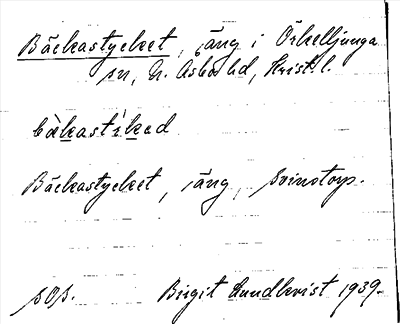 Bäckastycket, äng i Örkelljunga
sn, N. Åsbo hd, Krist. l.
bàkast`ikəd
Bäckastycket, äng, Svinstorp.
SOS. Birgit Lundkvist 1939.